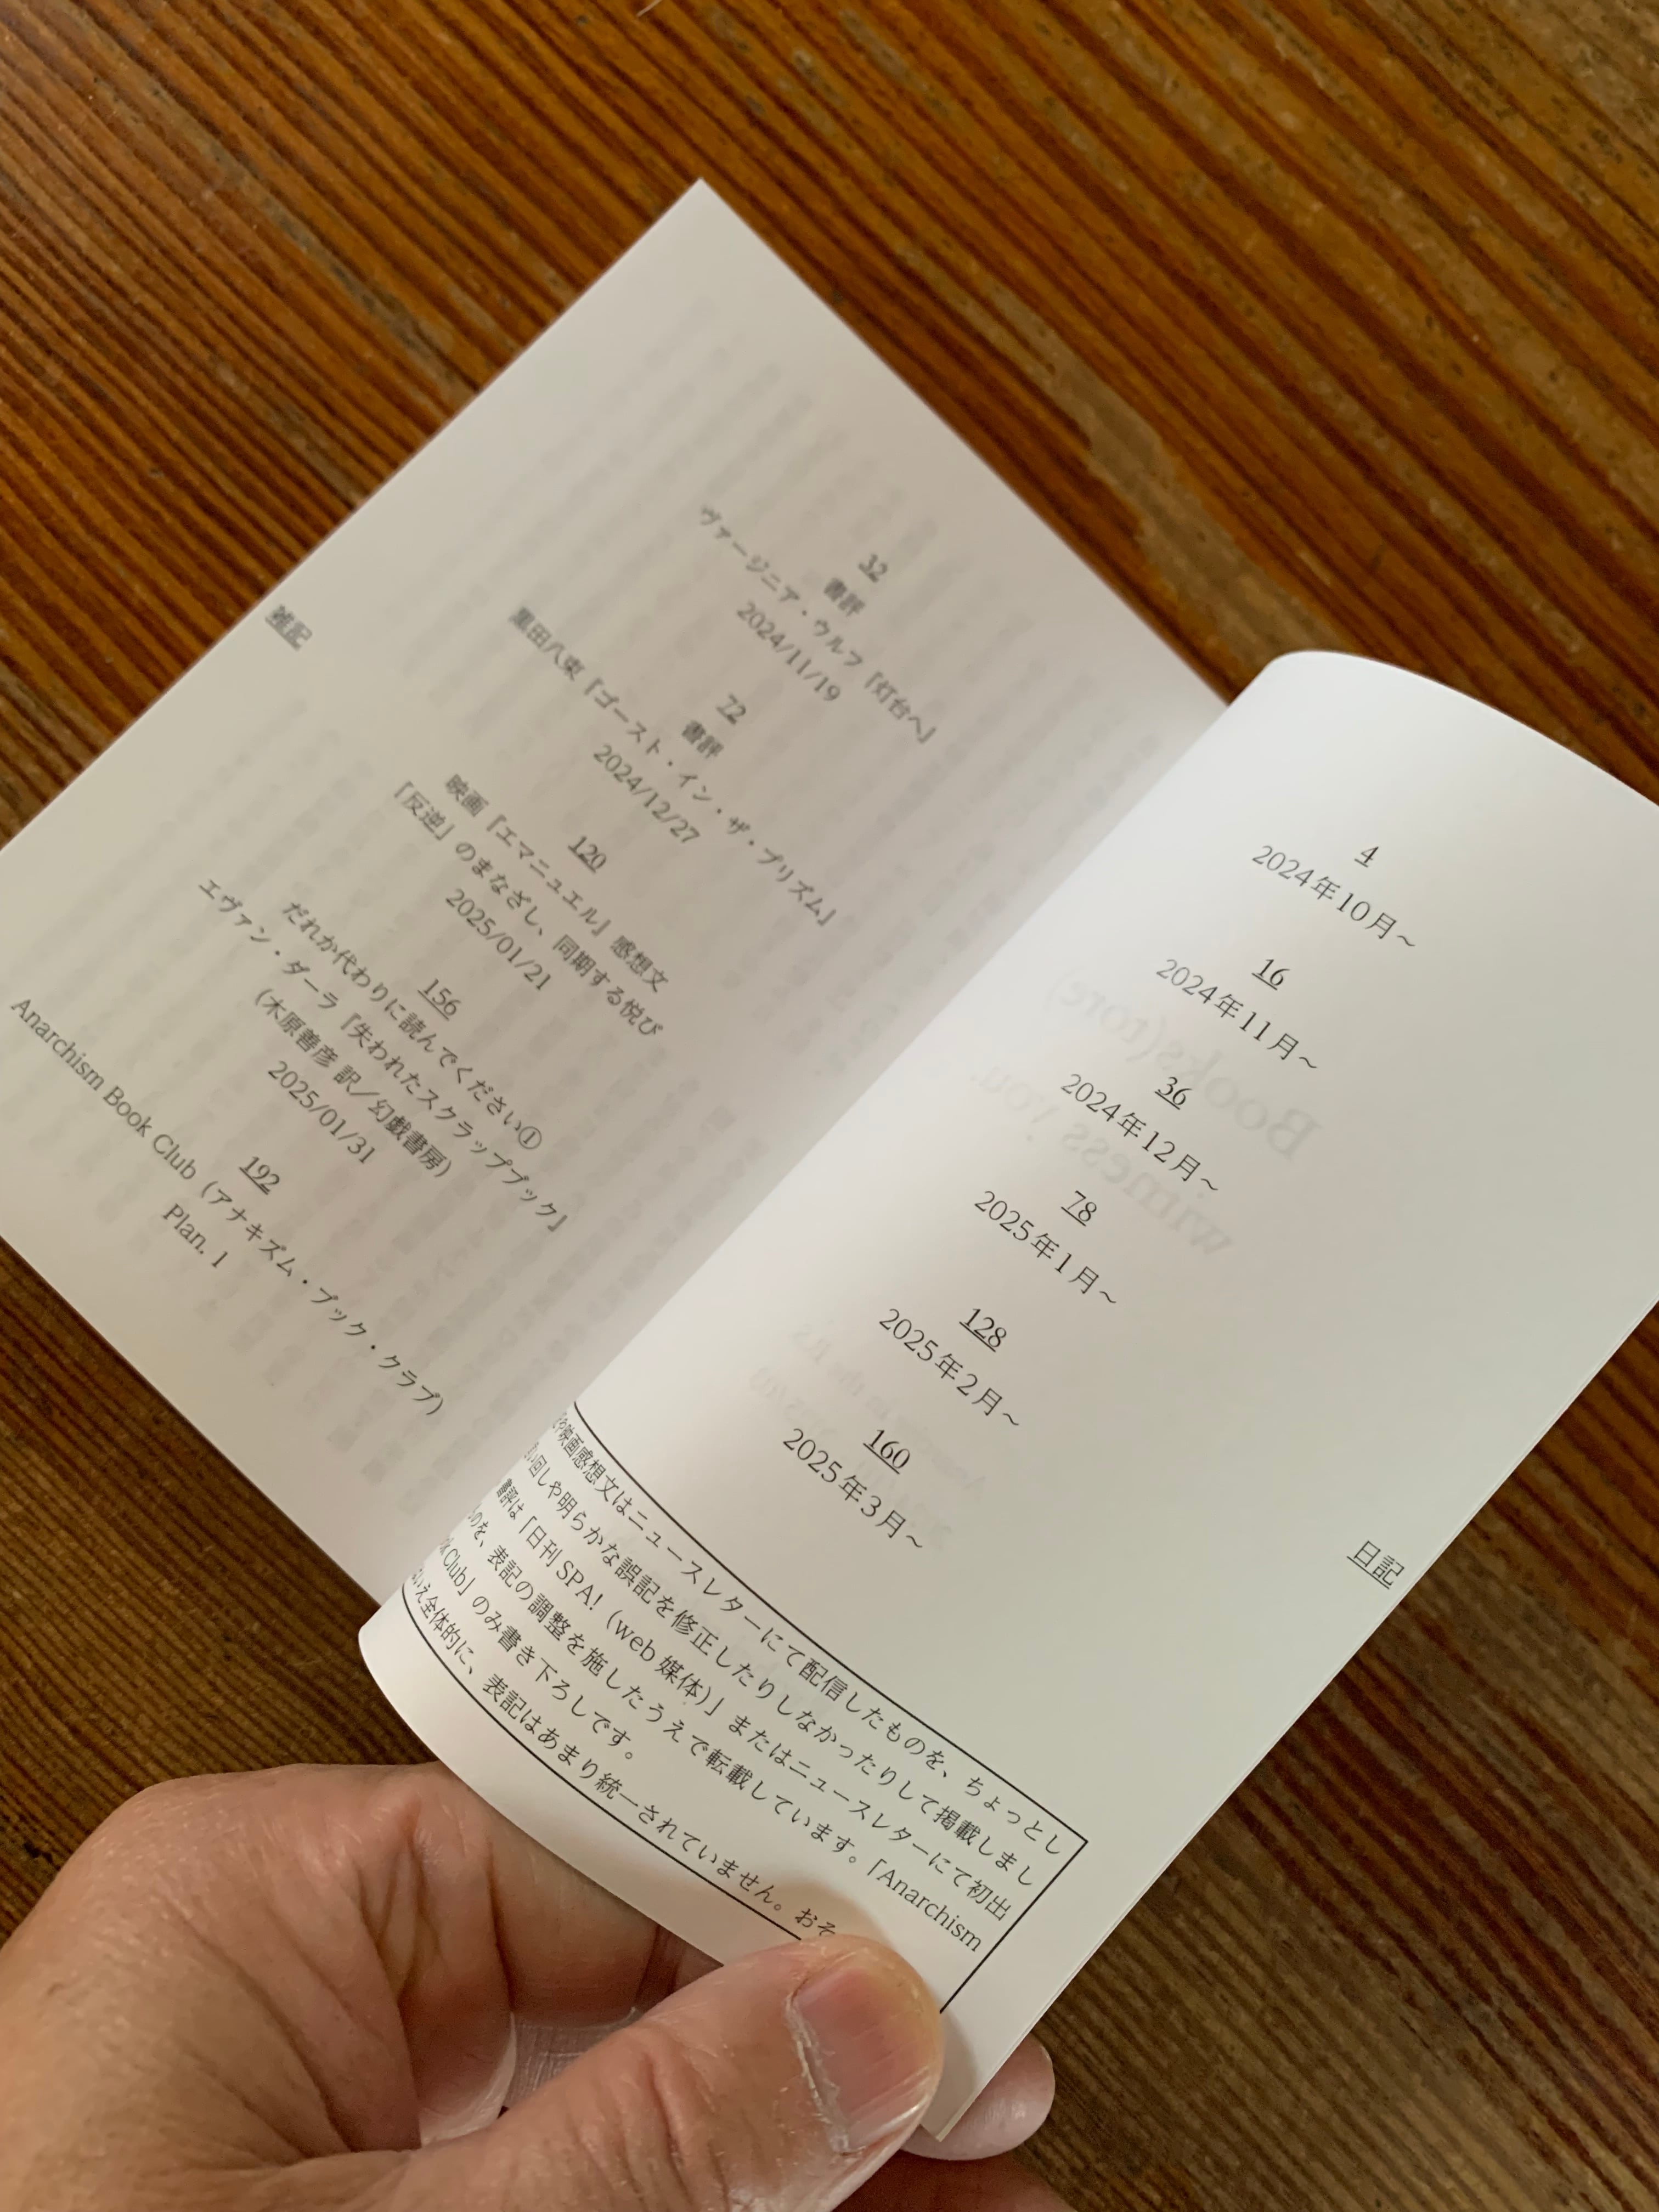 日記
4
2024年10月~
16
2024年11月~
36
2024年12月~
78
2025年1月~
128
2025年2月~
160
2025年3月~
や映画感想文はニュースレターにて配信したものを、ちょっとし
い回しや明らかな誤記を修正したりしなかったりして掲載しまし
書評は「日刊SPA!（web媒体）」またはニュースレターにて初出
のを、表記の調整を施したうえで転載しています。「Anarchism
Club」のみ書き下ろしです。
いえ全体的に、表記はあまり統一されていません。おそ
雑記
32
書評
ヴァージニア・ウルフ『灯台へ』
2024/11/19
72
書評
黒田八束『ゴースト・イン・ザ・プリズム』
2024/12/27
120
映画『エマニュエル』感想文
「反逆」のまなざし、同期する悦び
2025/01/21
156
だれか代わりに読んでください①
エヴァン・ダーラ『失われたスクラップブック』
（木原善彦 訳／幻戯書房）
2025/01/31
192
Anarchism Book Club（アナキズム・ブック・クラブ）
Plan. 1